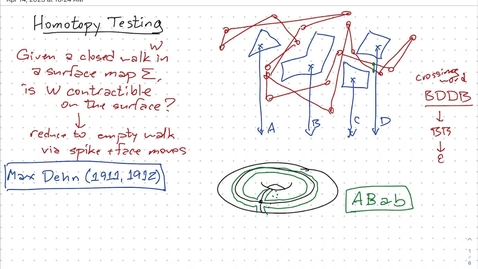 Homotopy Testing
Given a closed walk W in
a surface map Σ,
is W contractible
on the surface?
reduce to empty walk
via spike + face moves
Max Dehn (1911, 1912)
A
B
C
D
crossing
word
BDDB
BB
ε
ABab